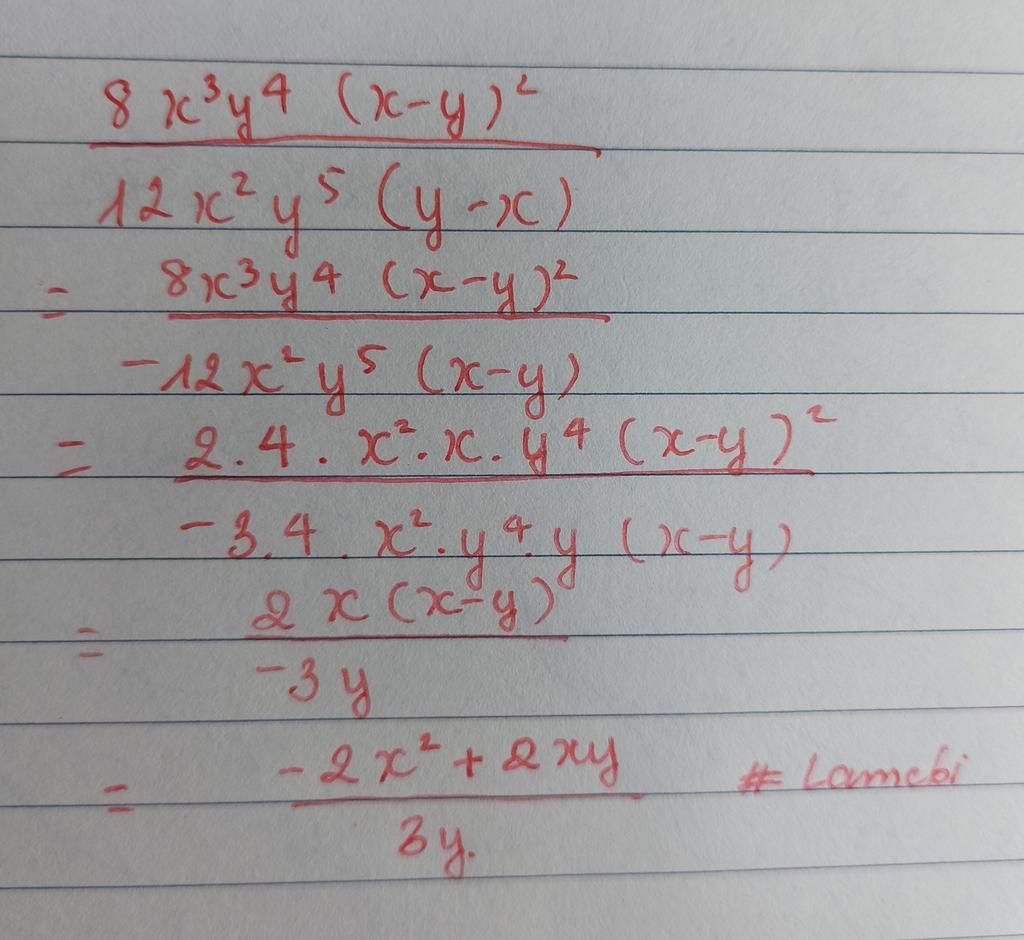 8 x³y⁴ (x-y)²
12x² y⁵ (y-x)
= 8x³y⁴ (x-y)²
-12x² y⁵ (x-y)
= 2.4. x².x. y⁴ (x-y)²
-3.4. x².y⁴.y (x-y)
= 2 x (x-y)
-3 y
= -2x² + 2xy # Lamebi
3y.